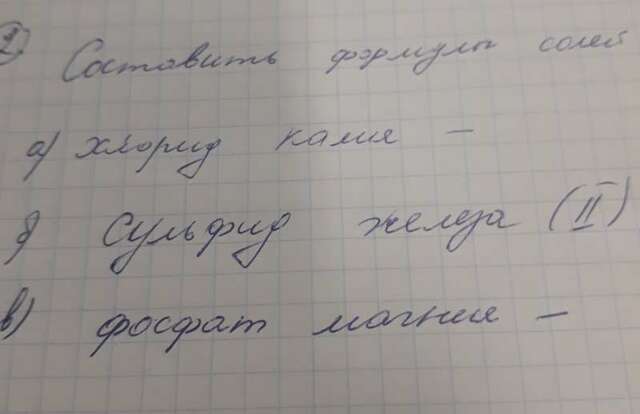 2) Составить формулы солей
а) хлорид калия –
б) сульфид железа (II)
в) фосфат магния –